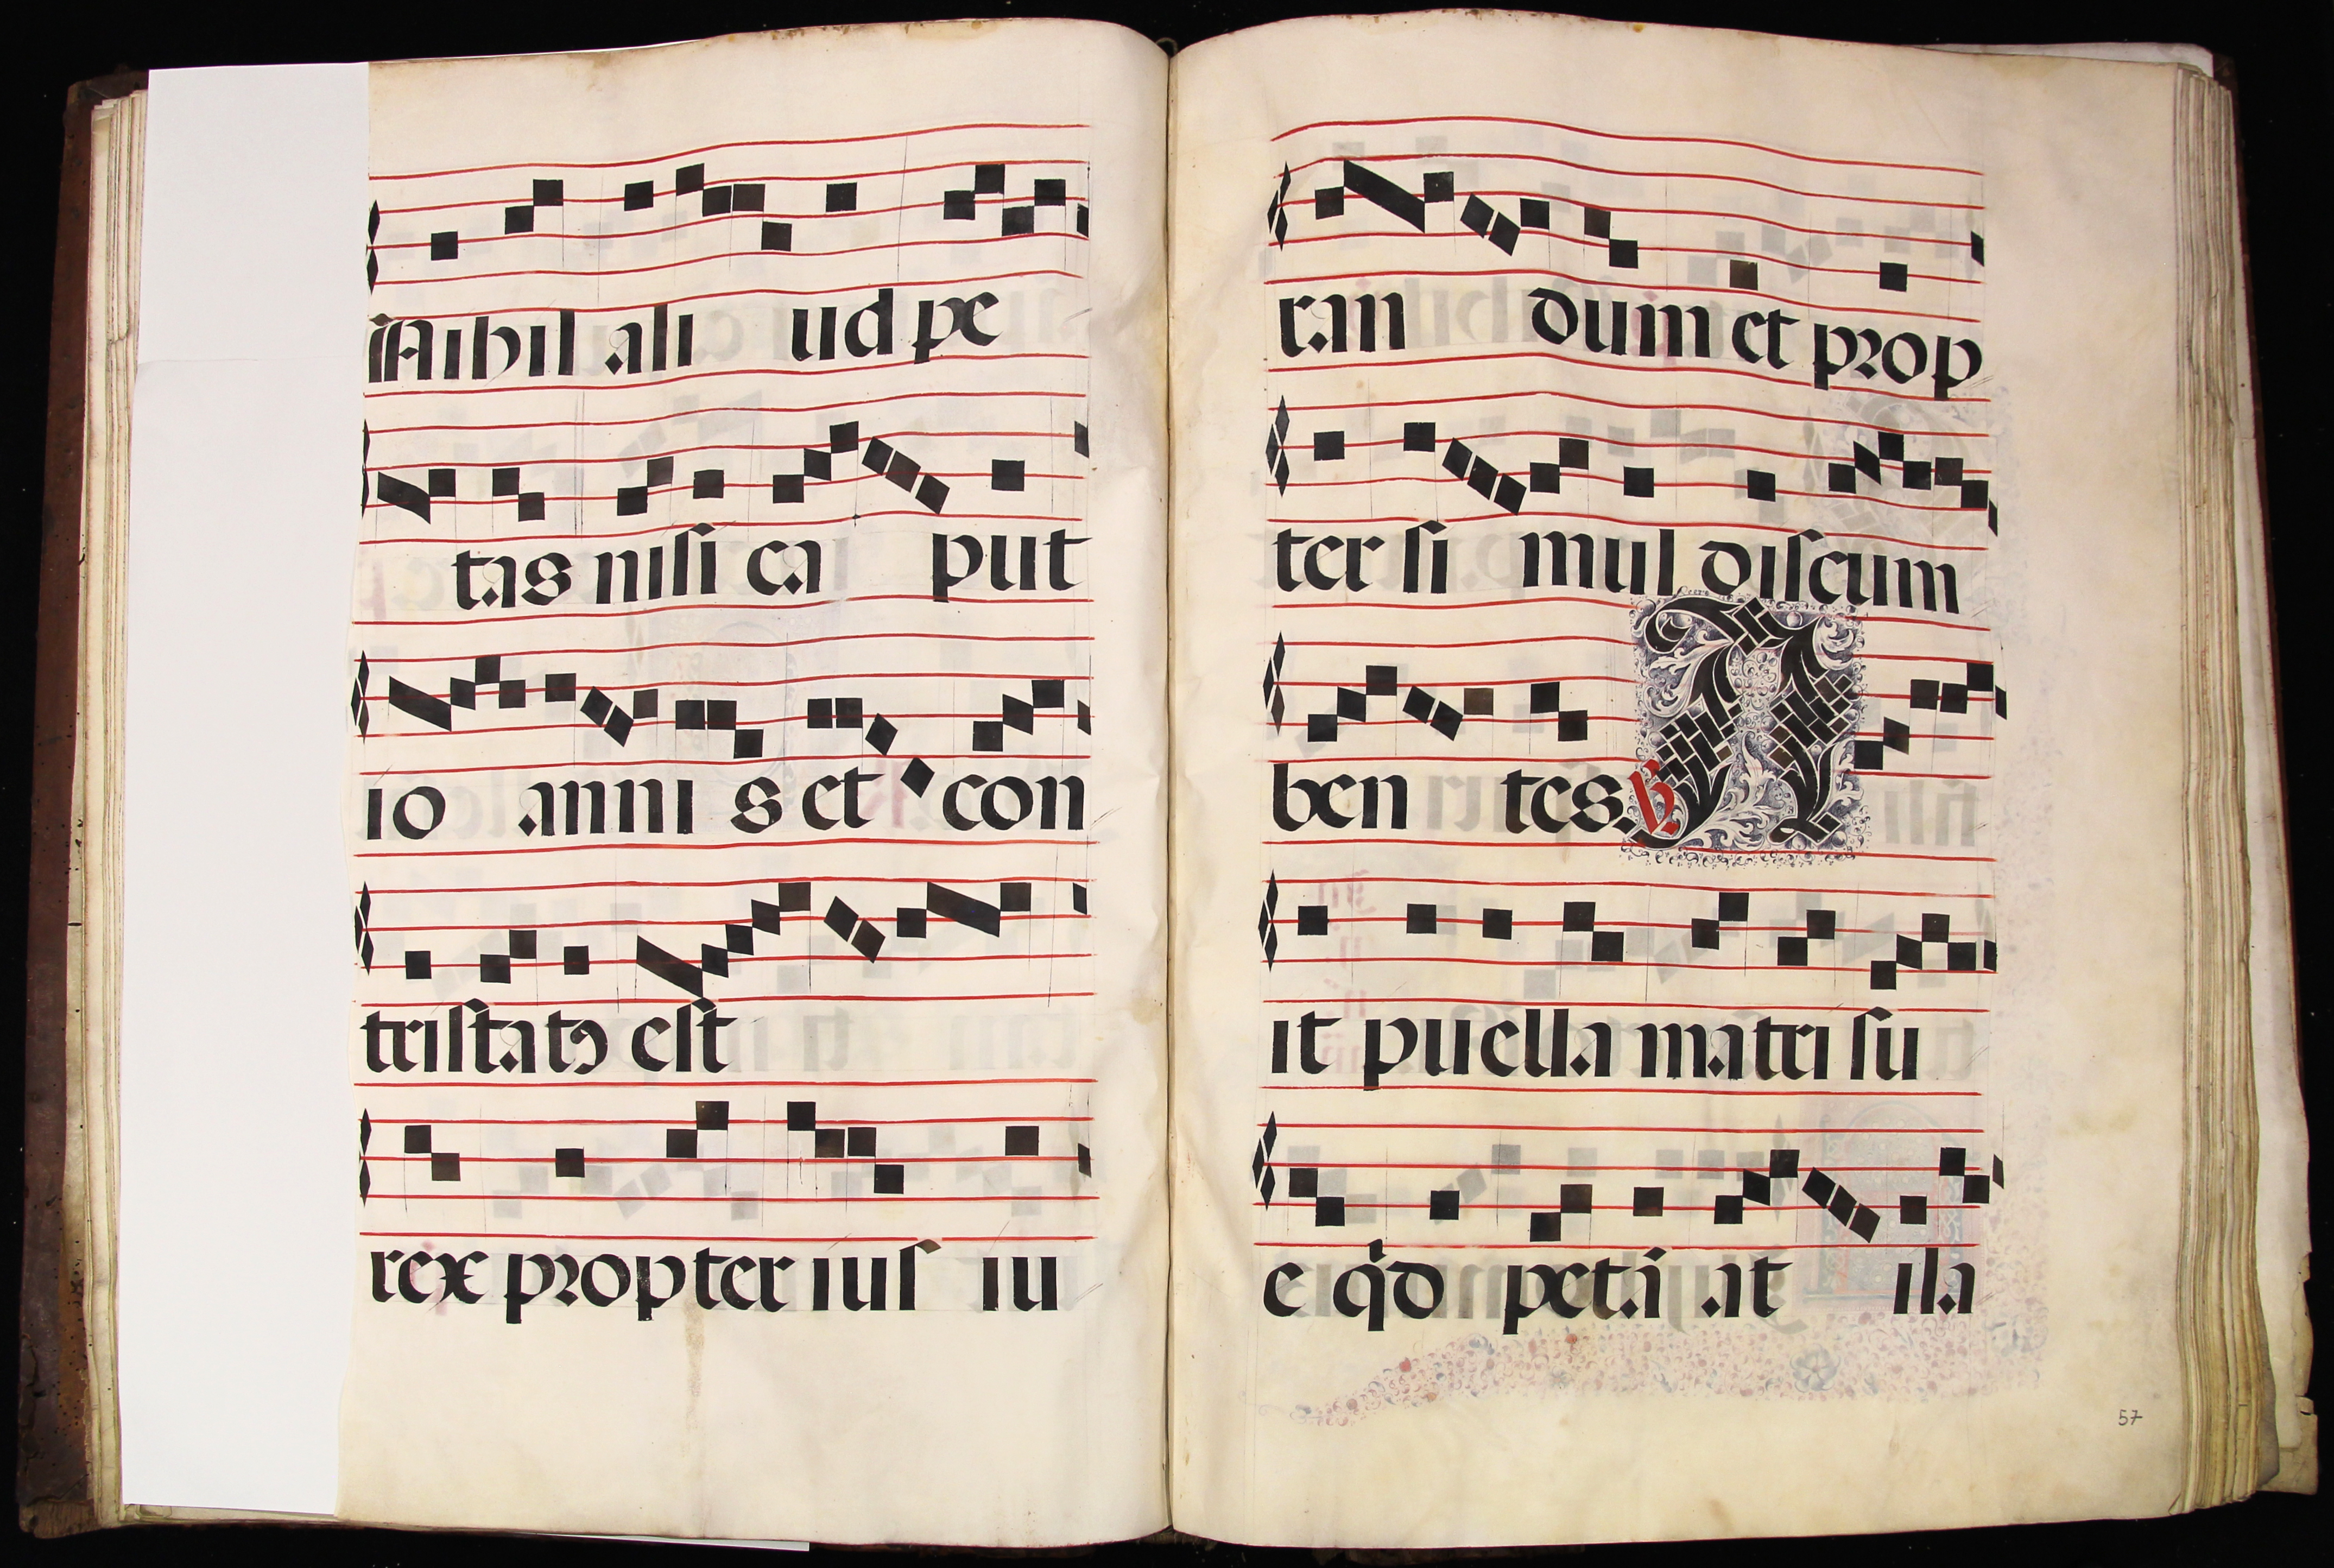 Nihil ali ud pe
tas nisi ca put
io anni s et con
tristatꝰ est
rex propter ius iu
ran dum et prop
ter si mul discum
ben tes. ℣ A
it puella matri su
e qd̓ petā at illa
57